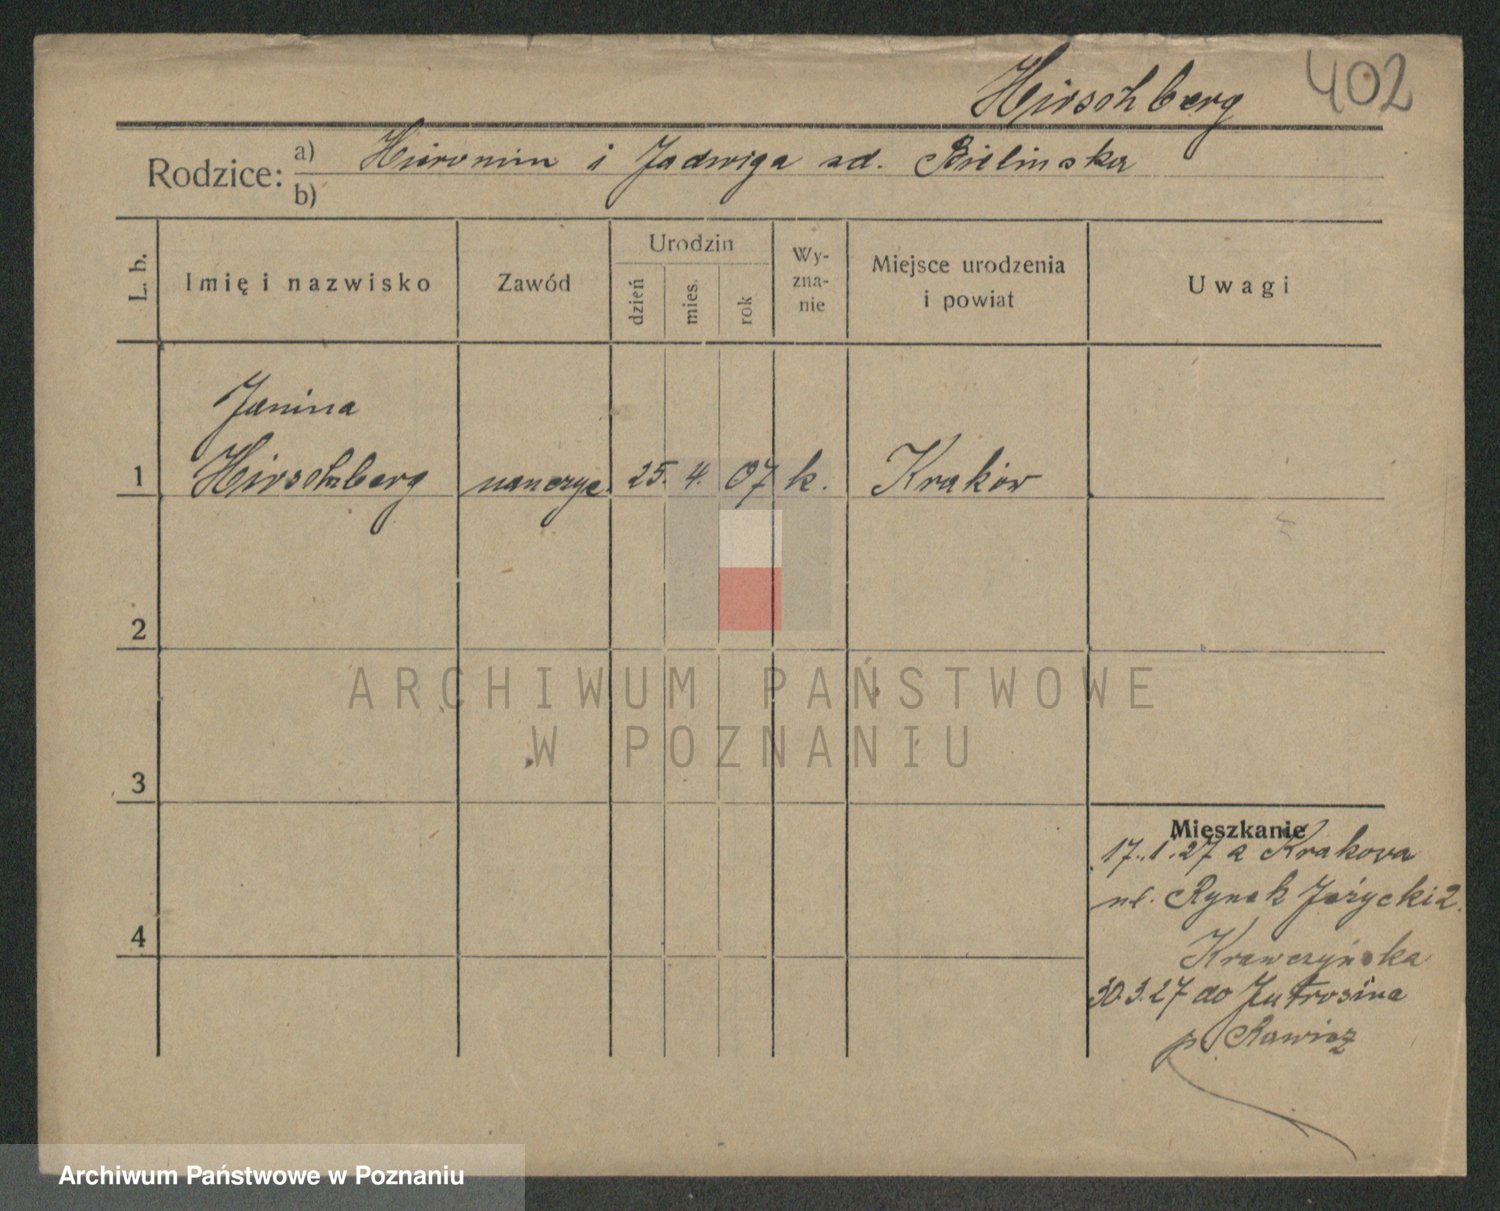 Hirschberg 402
Rodzice: a) Hieronim i Jadwiga zd. Bielinska
b)
L. b. Imię i nazwisko Zawód Urodzin dzień mies. rok Wy-zna-nie Miejsce urodzenia i powiat Uwagi
Janina
1 Hirschberg nauczyc. 25. 4. 07 k. Kraków
2
ARCHIWUM PAŃSTWOWE
W POZNANIU
3
Mieszkanie
17.1.27 z Krakowa
ul. Rynek Jeżycki 2.
4
Krawczyńska
30.3.27 do Jutrosina
p. Rawicz
Archiwum Państwowe w Poznaniu